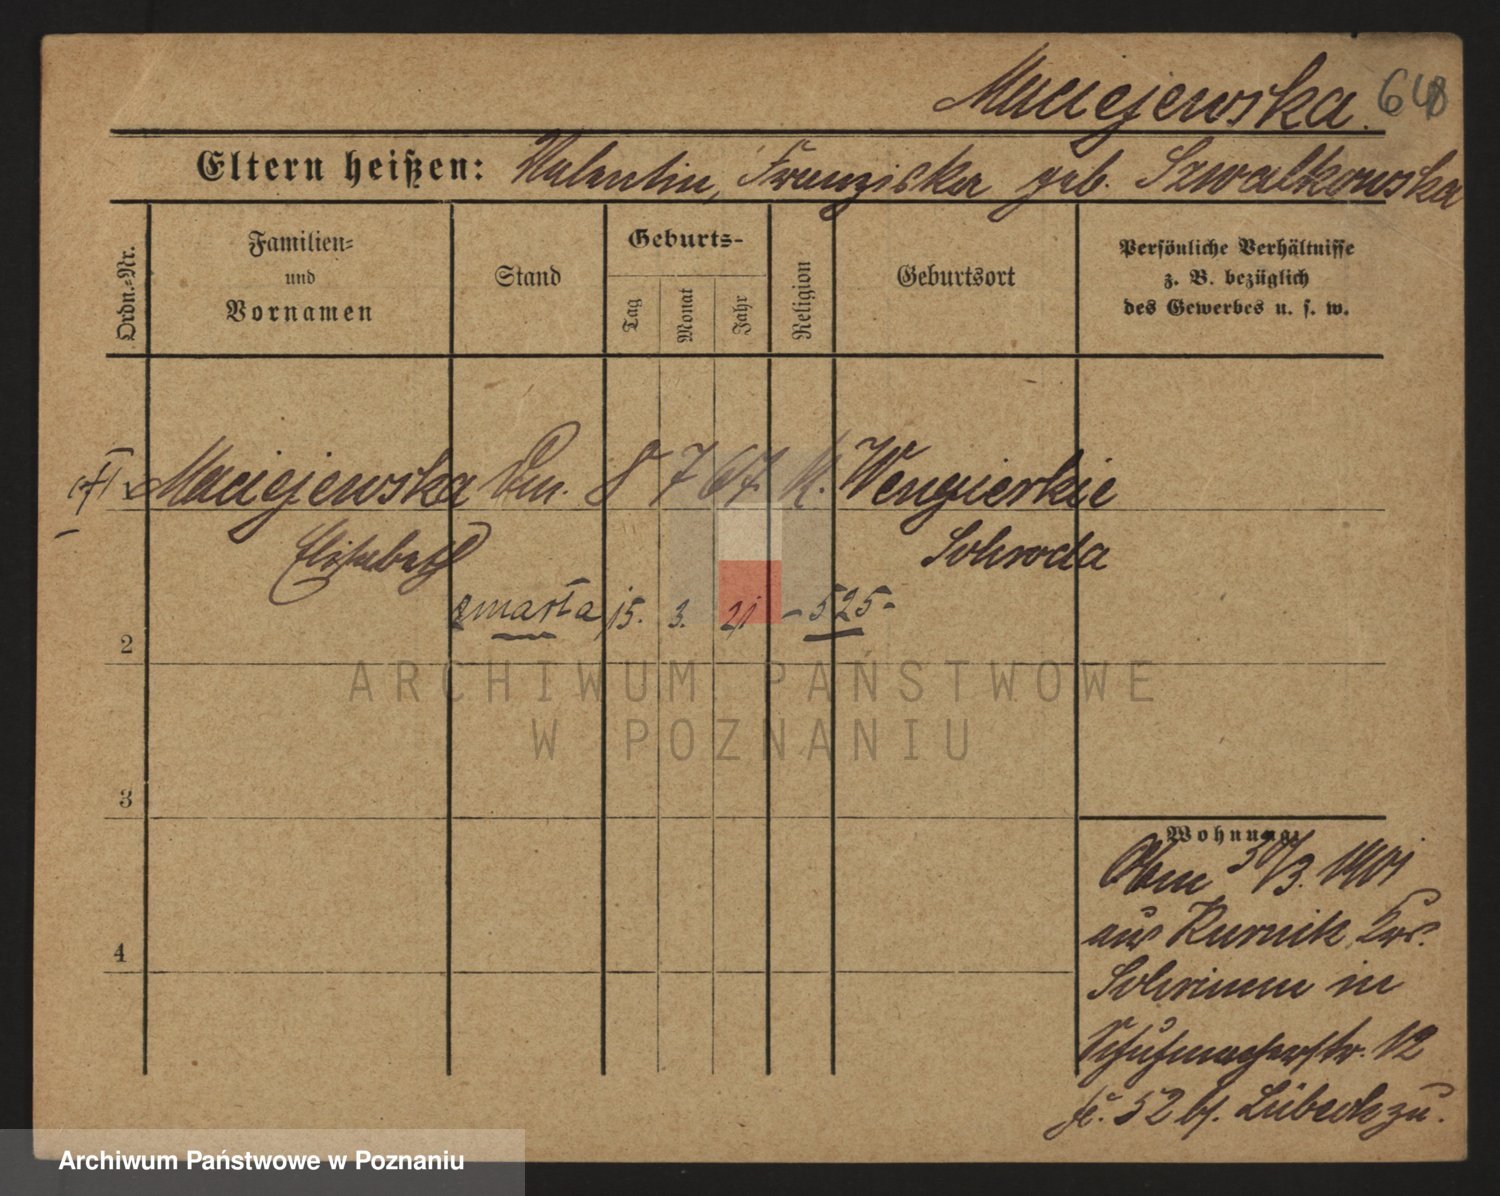 Maciejewska. 648
Eltern heißen: Valentin, Franziska geb. Szwalkowska
Ordn.-Nr.
Familien- und Vornamen
Stand
Geburts-
Tag
Monat
Jahr
Religion
Geburtsort
Persönliche Verhältnisse
z. B. bezüglich
des Gewerbes u. s. w.
Maciejewska 8 7 67. K. Wengierskie
Elisabeth Schroda
zmarła 15. 3. 21 - 525 -
2
3
4
Wohnung:
30/3. 1901
aus Kurnik Krs.
Schrimm in
Schuhmacherstr. 12
52 bf. Lübeck zu.
ARCHIWUM PAŃSTWOWE
W POZNANIU
Archiwum Państwowe w Poznaniu